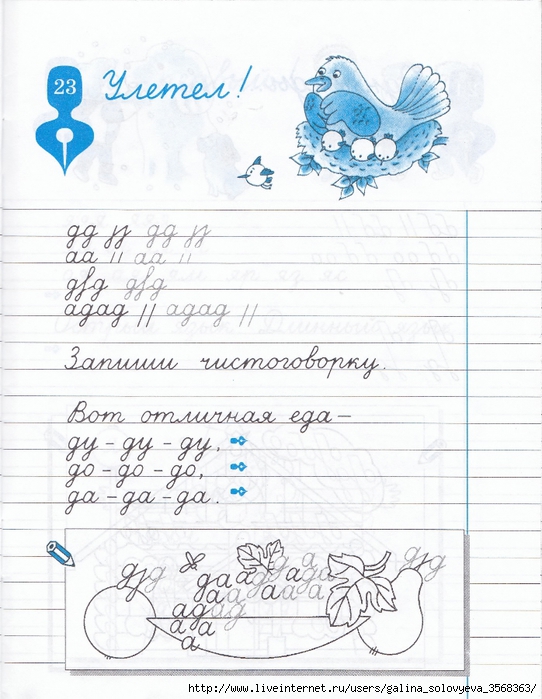 23
Улетел!
дд јј дд јј
аа ıı аа ıı
д∫д д∫д
адад ıı адад ıı
Запиши чистоговорку.
Вот отличная еда –
ду – ду – ду,
до – до – до,
да – да – да.
http://www.liveinternet.ru/users/galina_solovyeva_3568363/